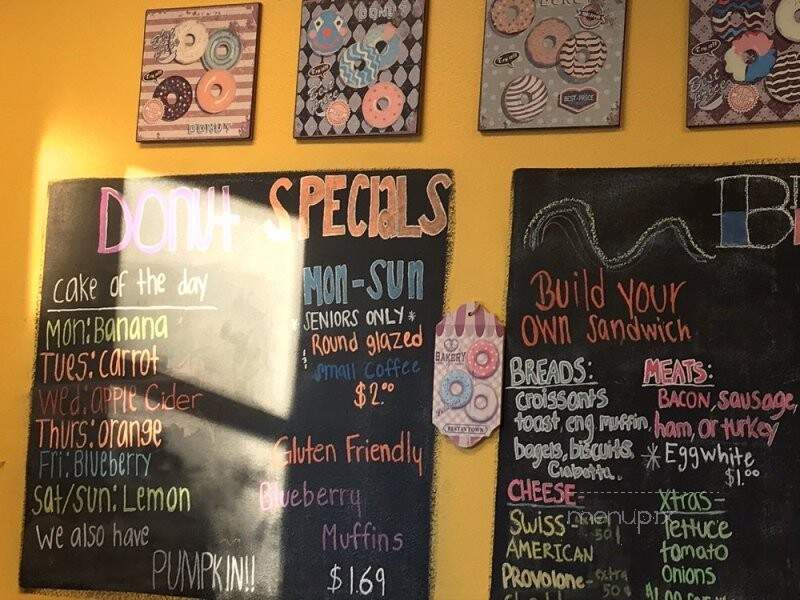 DONUT
DONUTS
BEST-PRICE
Donut SPECIALS
cake of the day
Mon: Banana
Tues: carrot
Wed: apple Cider
Thurs: orange
Fri: Blueberry
Sat/Sun: Lemon
We also have
PUMPKIN!!
MON-SUN
*SENIORS ONLY*
Round glazed
small coffee
$2.00
Gluten Friendly
Blueberry
Muffins
$1.69
BAKERY
BEST IN TOWN
Build your
OWN Sandwich
BREADS:
croissants
toast, eng. muffin,
bagels, biscuits,
Ciabatta.
MEATS:
BACON, sausage,
ham, or turkey
*Egg white
$1.00
CHEESE-
Swiss
AMERICAN
Provolone- extra
50¢
xtras-
lettuce
tomato
onions
menupix